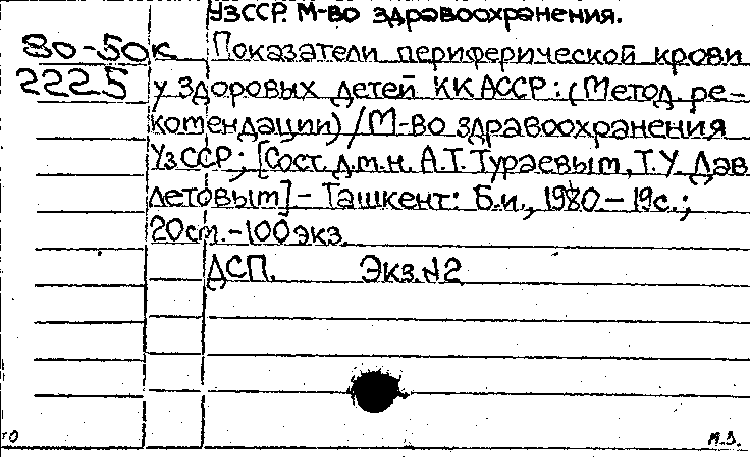 УзССР. М-во здравоохранения.
80-50к Показатели периферической крови
2225 у здоровых детей ККАССР: (Метод. ре-
комендации) / М-во здравоохранения
УзССР; [Сост. д.м.н. А.Т. Тураевым, Т.У. Дав
летовым] - Ташкент: Б.и., 1980. - 19с.;
20см. - 100экз.
ДСП. Экз. №2
го М.З.